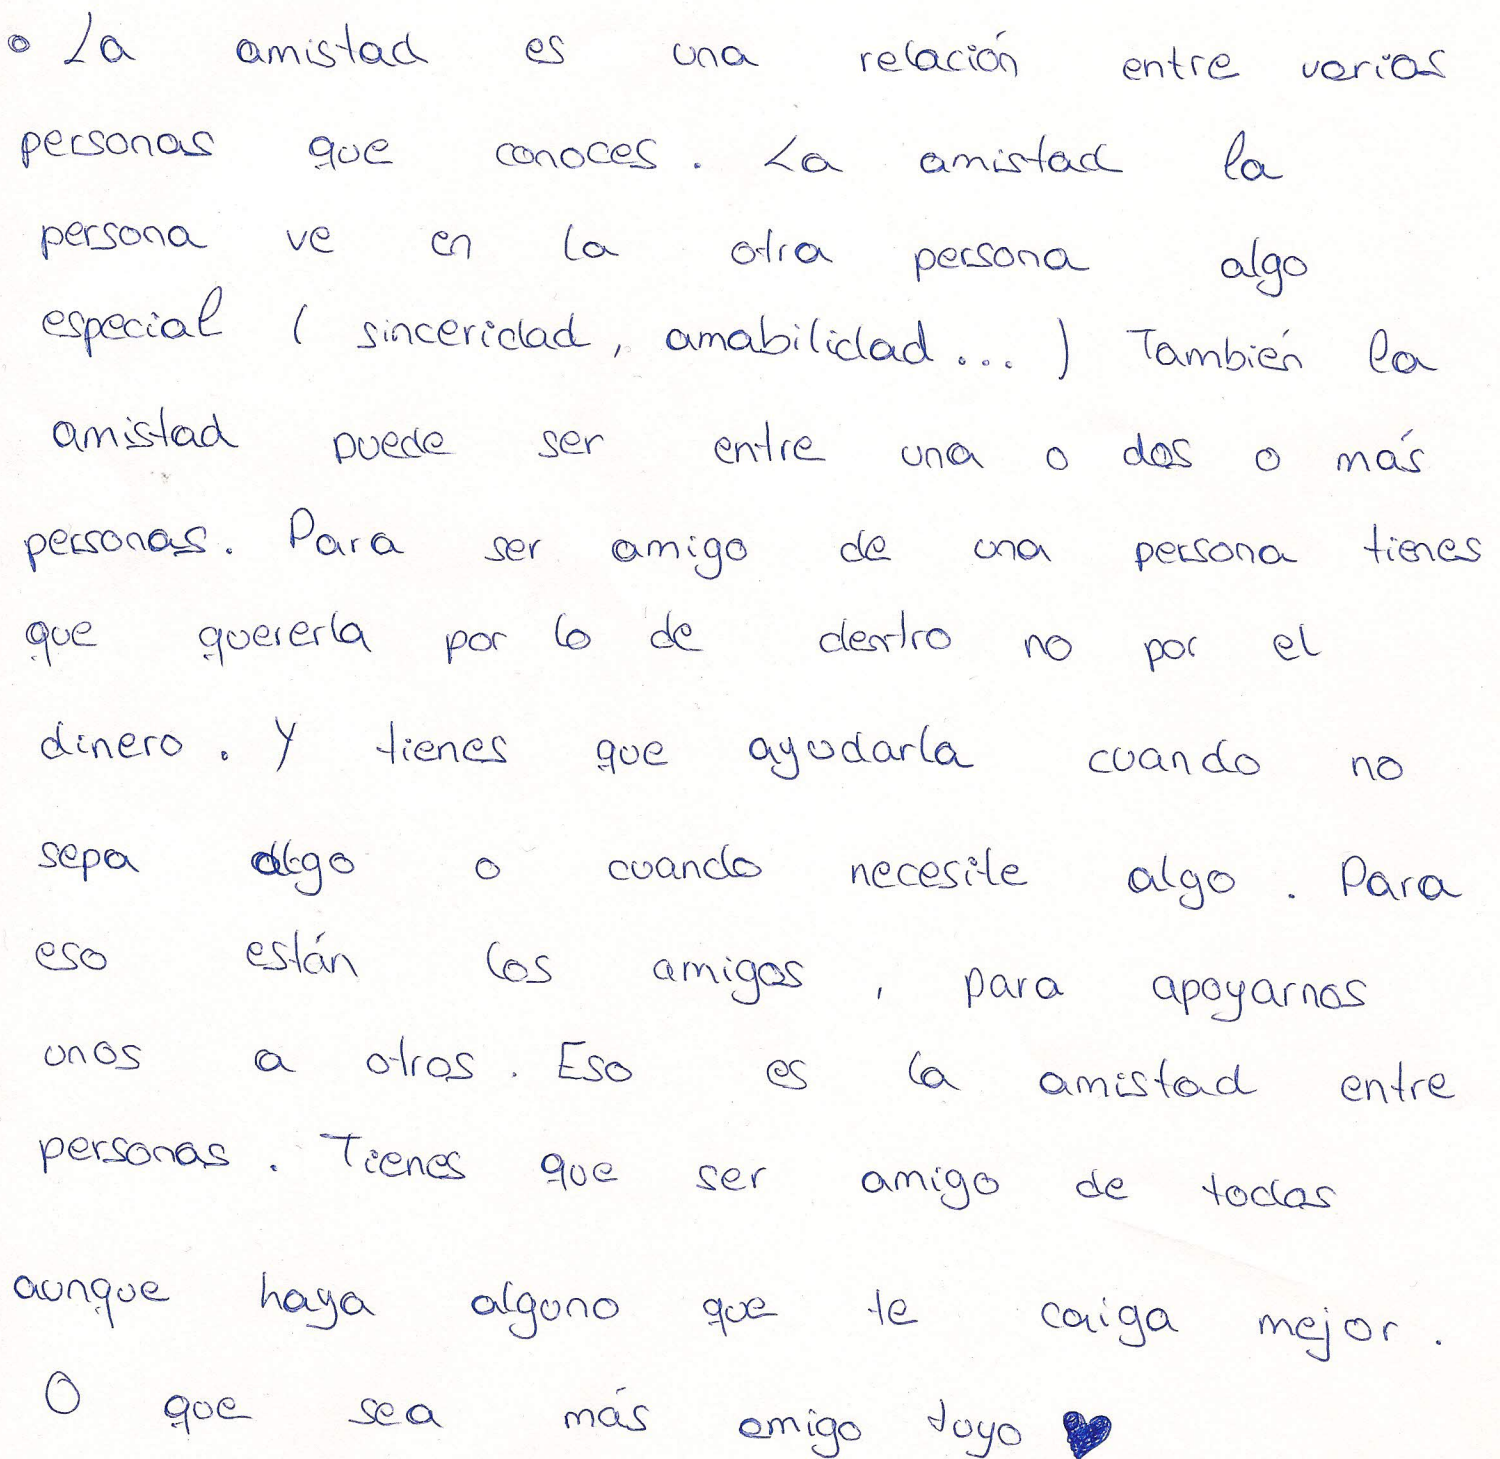 • La amistad es una relación entre varias
personas que conoces. La amistad la
persona ve en la otra persona algo
especial (sinceridad, amabilidad...) También la
amistad puede ser entre una o dos o más
personas. Para ser amigo de una persona tienes
que quererla por lo de dentro no por el
dinero. Y tienes que ayudarla cuando no
sepa algo o cuando necesite algo. Para
eso están los amigos, para apoyarnos
unos a otros. Eso es la amistad entre
personas. Tienes que ser amigo de todos
aunque haya alguno que te caiga mejor.
O que sea más amigo tuyo ♥